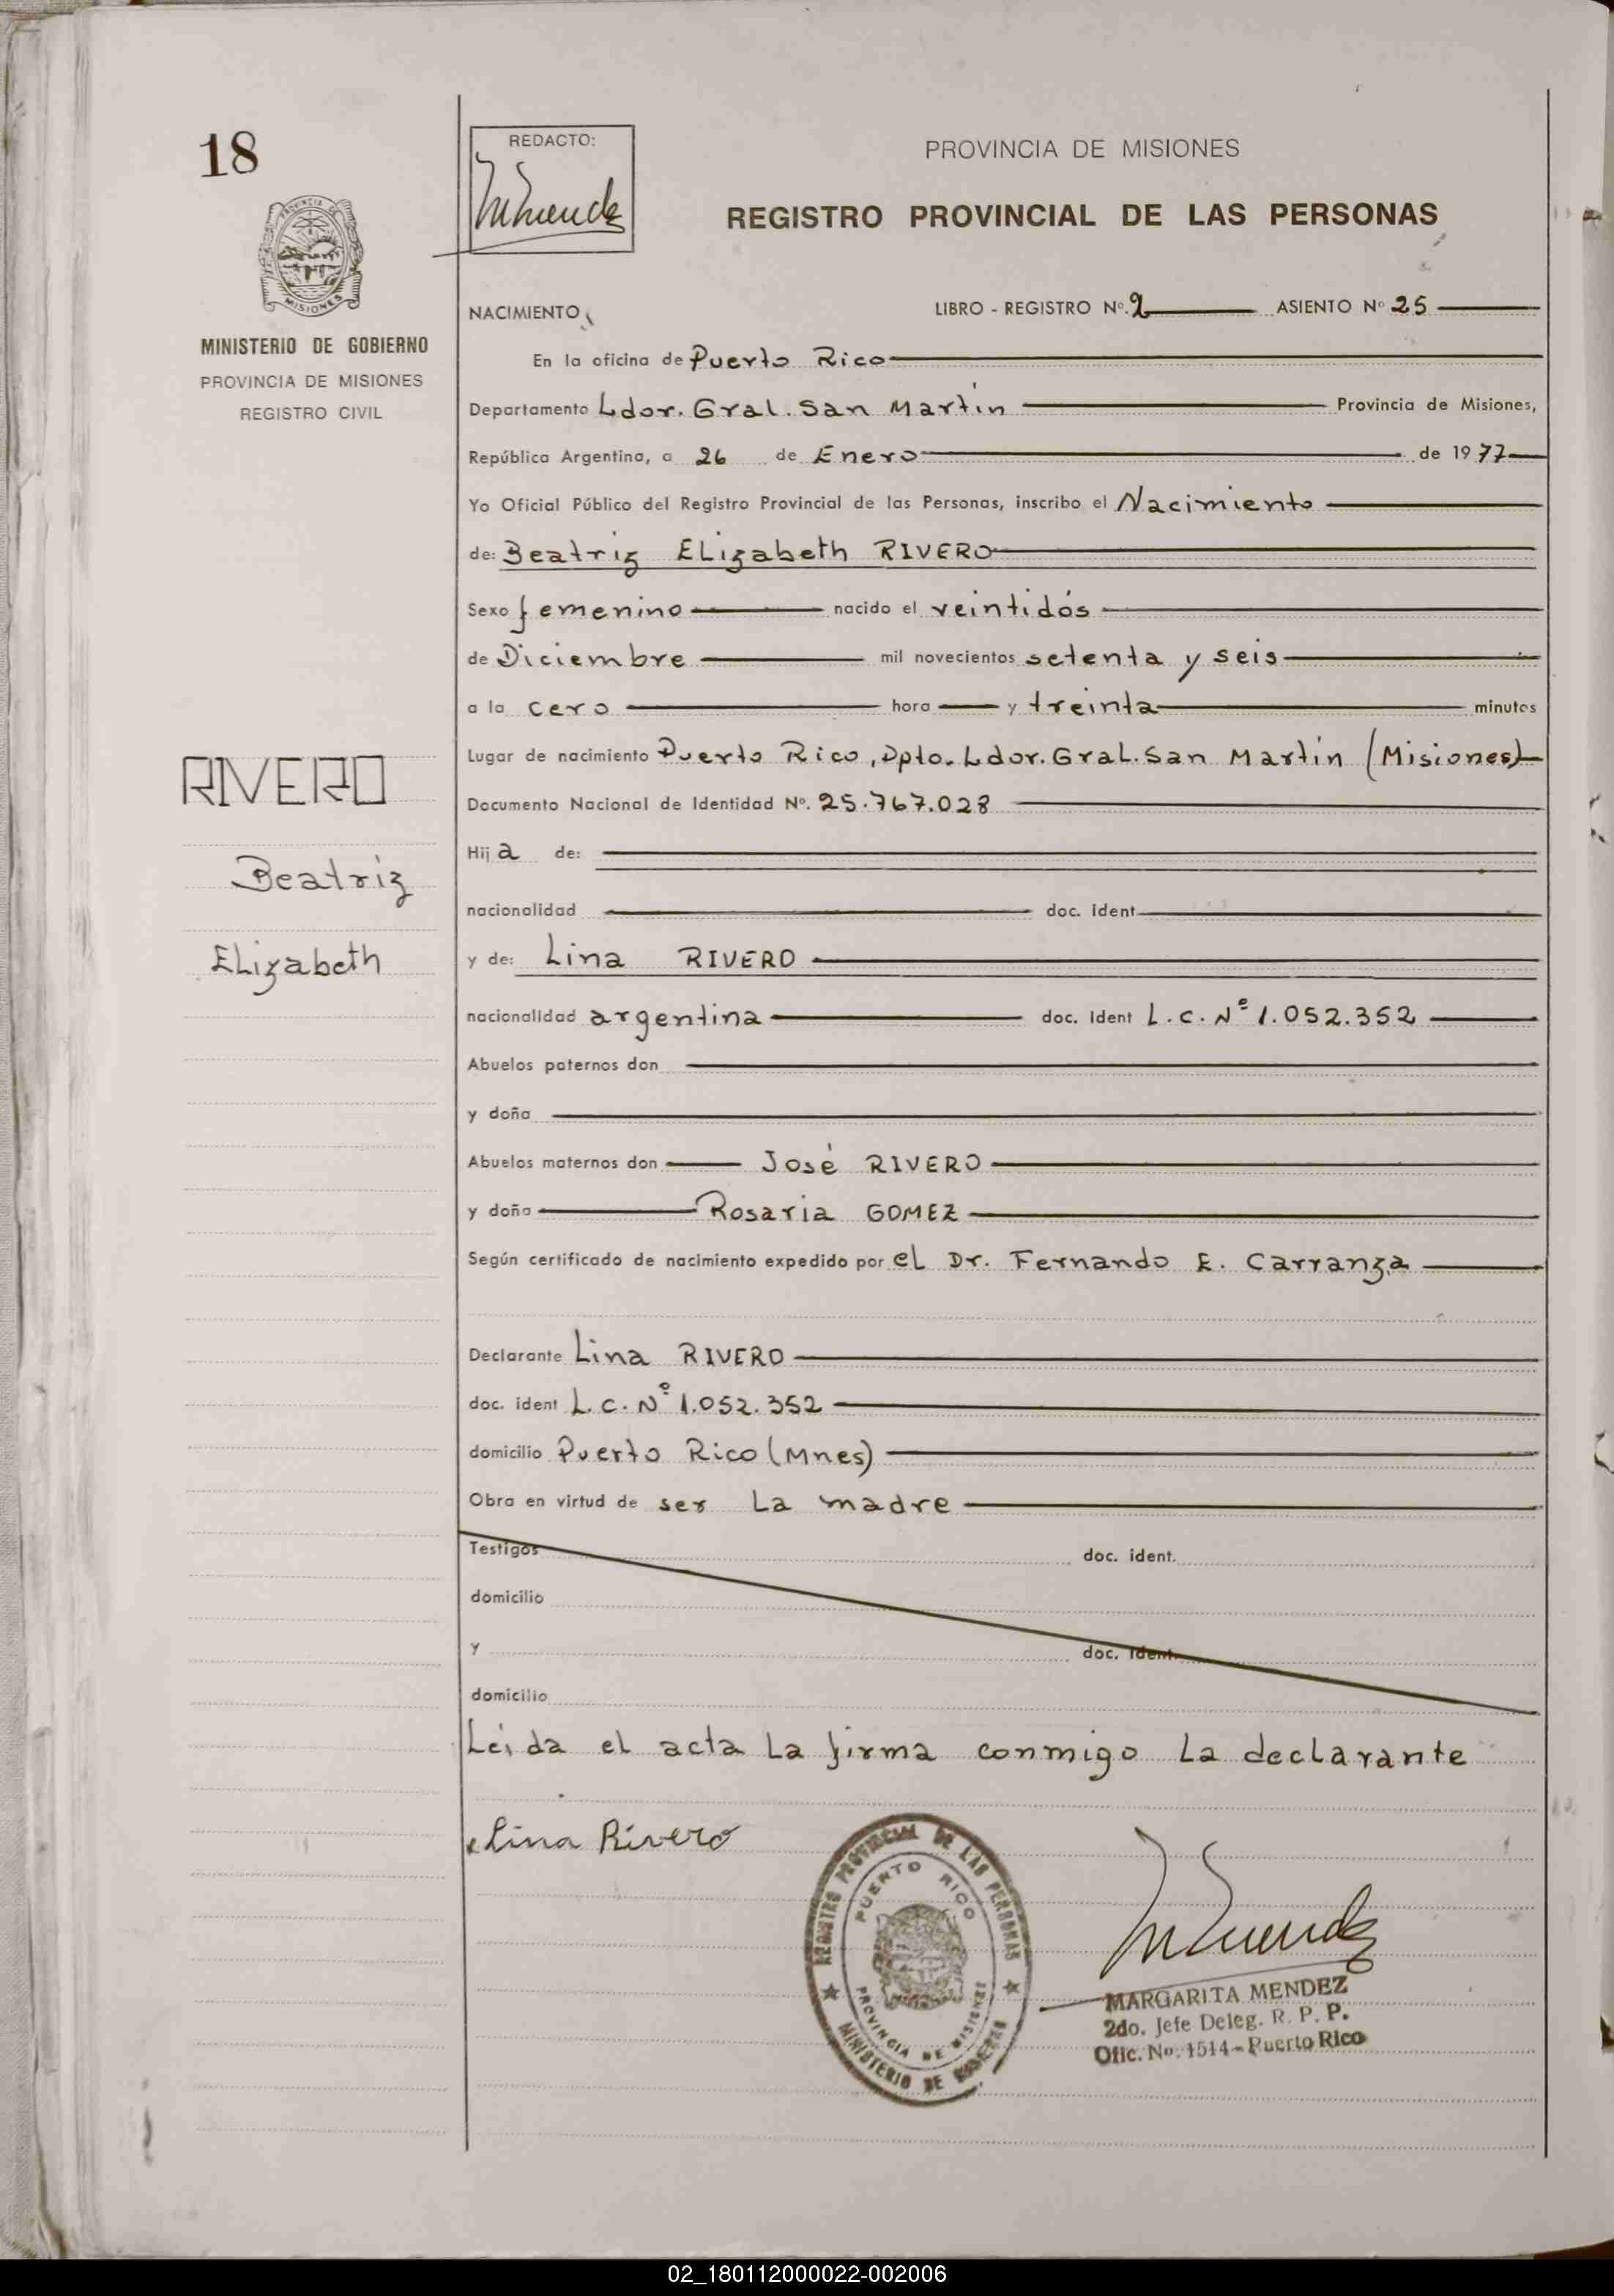 18
REDACTO:
PROVINCIA DE MISIONES
REGISTRO PROVINCIAL DE LAS PERSONAS
PROVINCIA DE
MISIONES
MINISTERIO DE GOBIERNO
PROVINCIA DE MISIONES
REGISTRO CIVIL
NACIMIENTO LIBRO - REGISTRO Nº. 2 ASIENTO Nº 25
En la oficina de Puerto Rico
Departamento Ldor. Gral. San Martín Provincia de Misiones,
República Argentina, a 26 de Enero de 1977
Yo Oficial Público del Registro Provincial de las Personas, inscribo el Nacimiento
de: Beatriz Elizabeth RIVERO
Sexo femenino nacido el veintidós
de Diciembre mil novecientos setenta y seis
a la cero hora y treinta minutos
Lugar de nacimiento Puerto Rico, Dpto. Ldor. Gral. San Martín (Misiones)
Documento Nacional de Identidad Nº. 25.767.028
Hija de:
nacionalidad doc. ident
y de: Lina RIVERO
nacionalidad argentina doc. Ident L.C. Nº 1.052.352
Abuelos paternos don
y doña
Abuelos maternos don José RIVERO
y doña Rosaria GOMEZ
Según certificado de nacimiento expedido por el Dr. Fernando E. Carranza
Declarante Lina RIVERO
doc. ident L.C. Nº 1.052.352
domicilio Puerto Rico (Mnes)
Obra en virtud de ser la madre
Testigos doc. ident.
domicilio
y doc. Ident.
domicilio
Leída el acta la firma conmigo la declarante
Lina Rivero
RIVERO
Beatriz
Elizabeth
REGISTRO PROVINCIAL DE LAS PERSONAS
PUERTO RICO
PROVINCIA DE MISIONES
MINISTERIO DE GOBIERNO
MARGARITA MENDEZ
2do. Jefe Deleg. R. P. P.
Ofic. No. 1514 - Puerto Rico
02_180112000022-002006